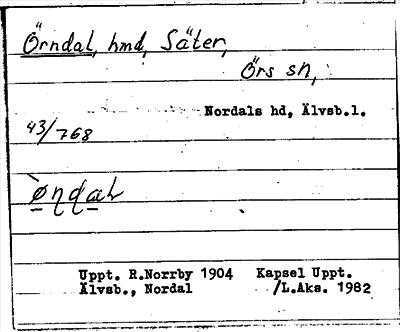 Örndal, hmd, Säter,
Örs sn,
Nordals hd, Älvsb.l.
43/768
Uppt. R.Norrby 1904 Kapsel Uppt.
Älvsb., Nordal /L.Aks. 1982